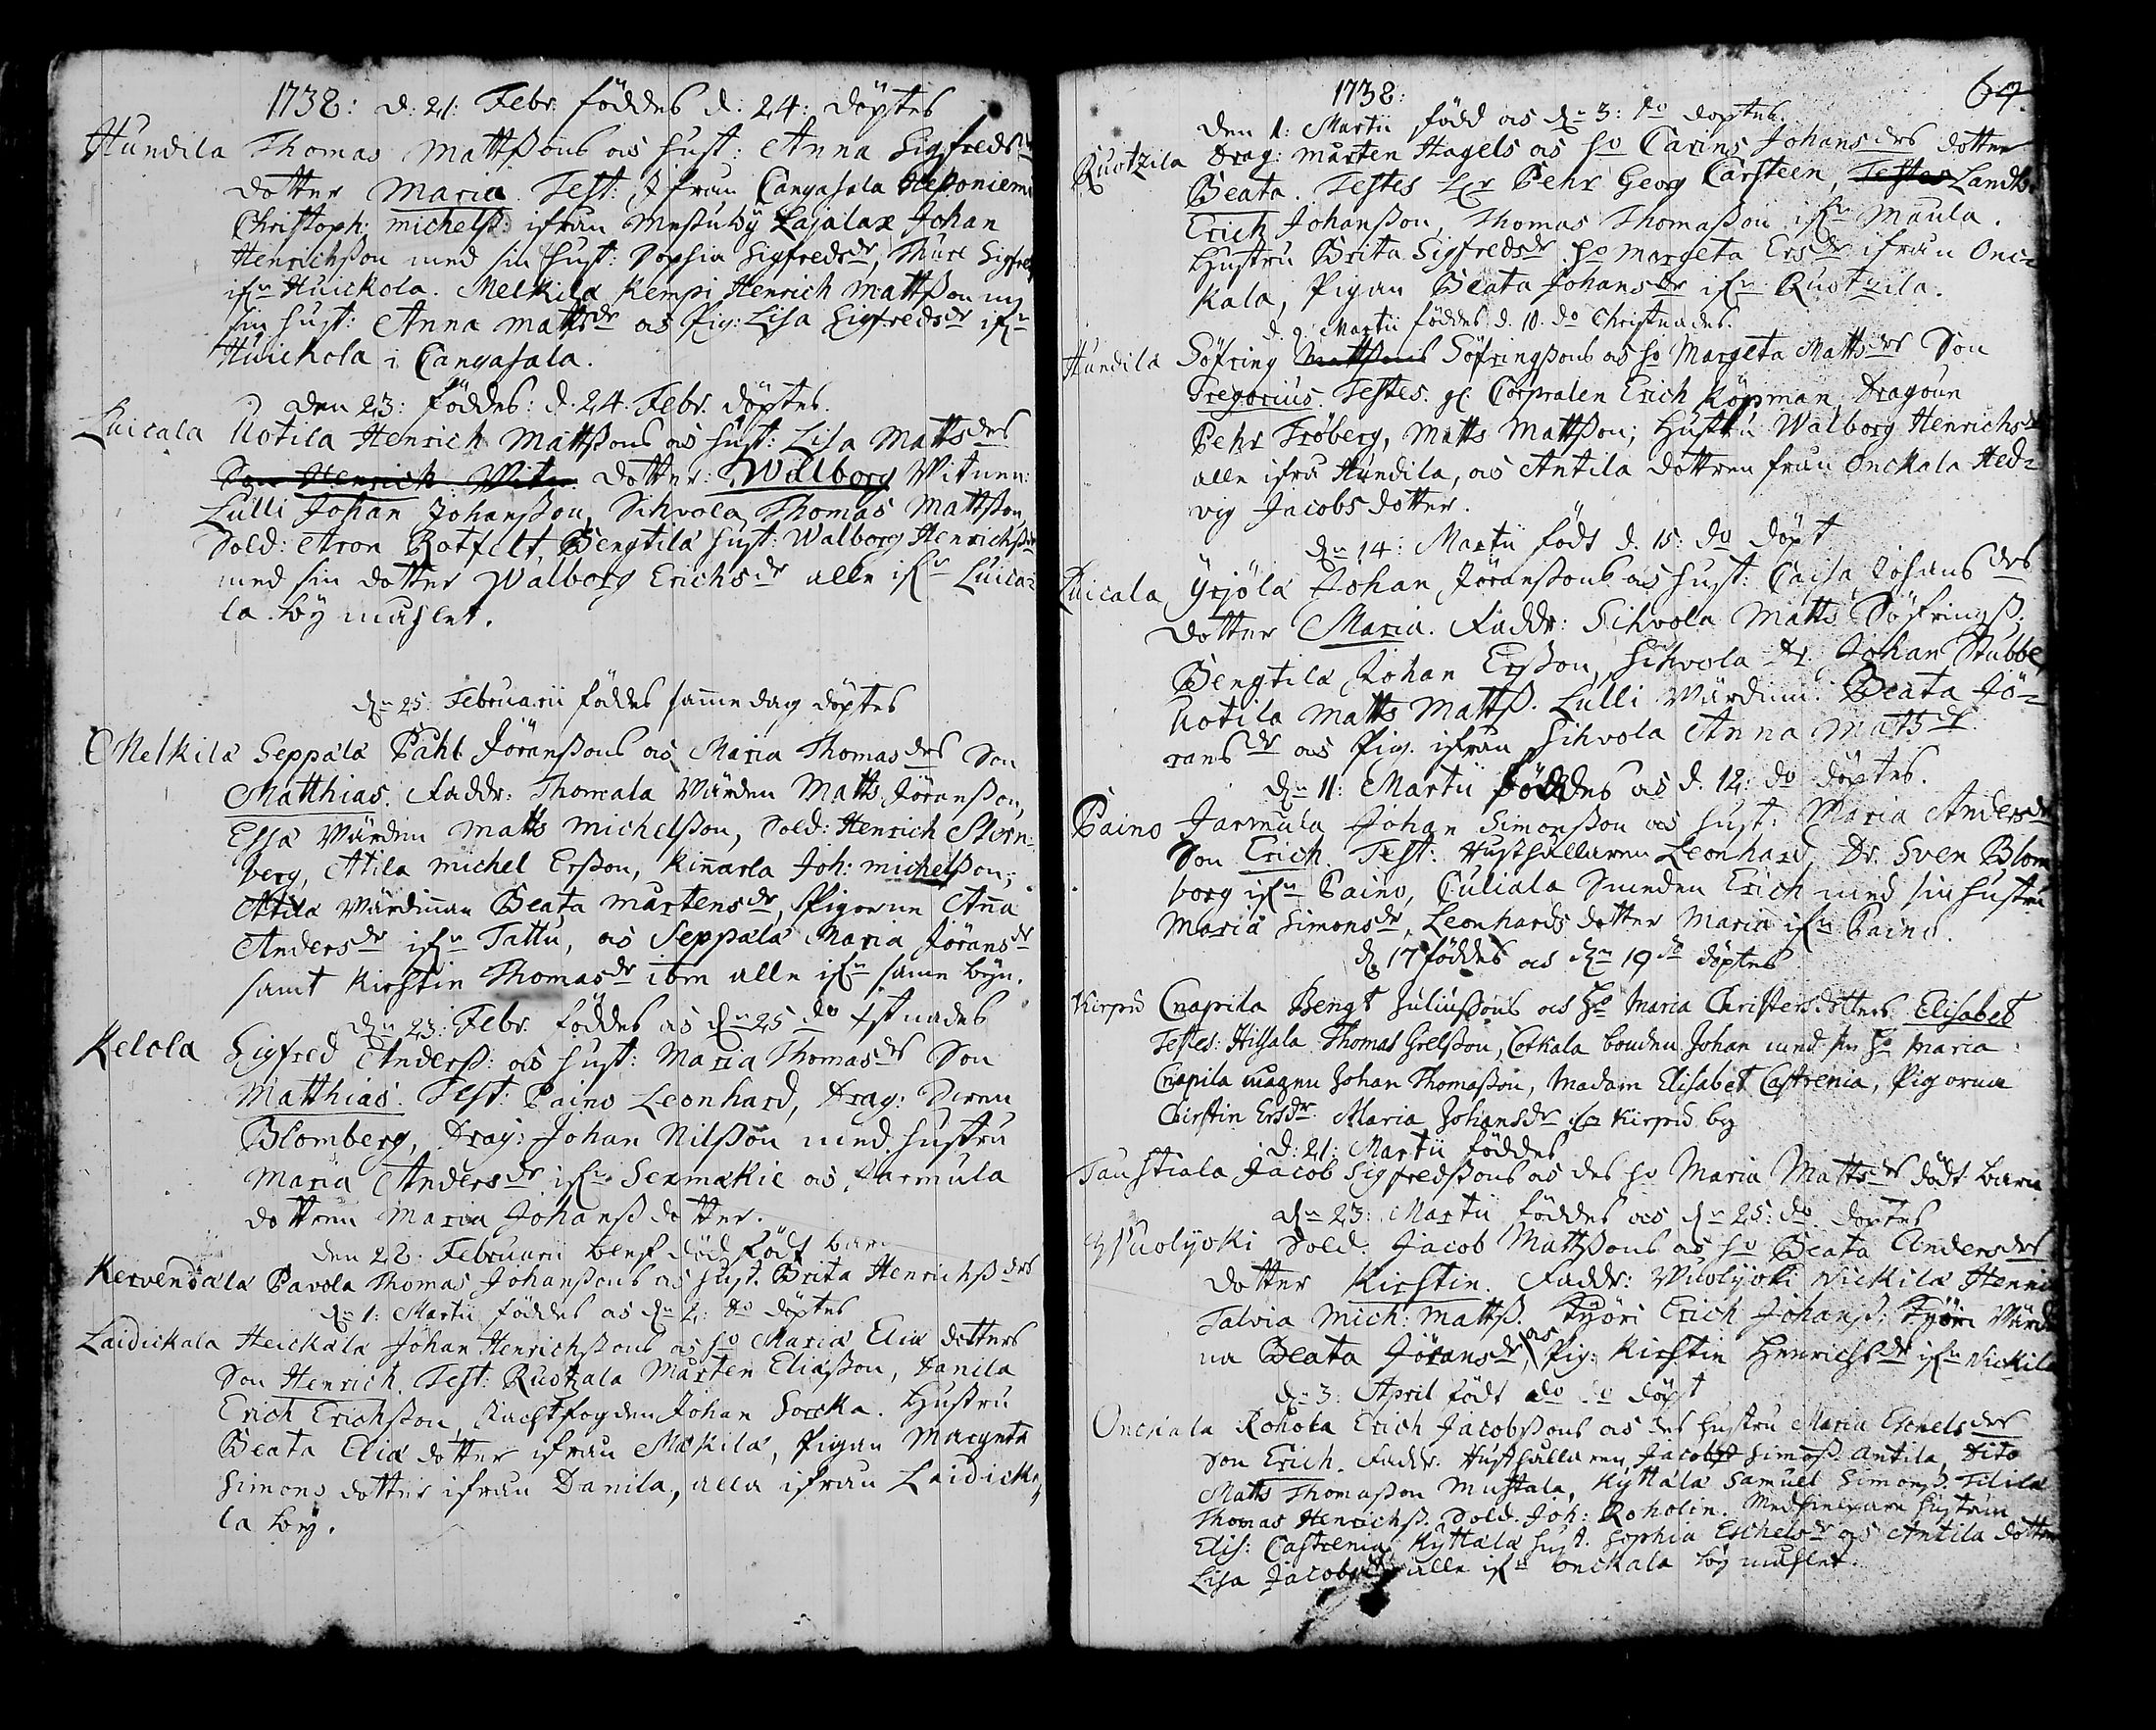 1738: d. 21: Febr. föddes d. 24: döptes
Hundila Thomas Mattßons os hust: Anna Sigfreds
dotter Maria. Test: ifrån Cangasala Heponiemi
Christoph: Michelß: ifrån Mesuby Lajalax Johan
Henrichßon med sin hust: Sophia Sigfredsdr, Mårt Sigfreds
ifrn Huickola. Melkila Kempi Henrich Mattßon m
sin hust: Anna Mattsdr os Pig: Lisa Sigfredsdr ifrn
Huickola i Cangasala.
den 23: föddes: d. 24. Febr. döptes.
Luicala Uotila Henrich Mattßons os hust: Lisa Mattsdrs
Son Henrich. Witn: dotter: Walborg Witnen:
Lulli Johan Johanßon, Sihvola Thomas Mattßon,
Sold: Aron Rotfelt, Bengtila hust: Walborg Henrichßdr
med sin dotter Walborg Erichsdr alle ifrn Luica-
la by .
dn 25 Februarii föddes samme dag döptes
Melkila Seppälä Påhl Jöranßons os Maria Thomasdrs Son
Matthias. Faddr: Thomala Wärden Matts Jöranßon,
Essa Wärden Matts Michelßon, Sold: Henrich Stern-
berg, Atila Michel Erßon, Kinarla Joh: Michelßon;
Atila Wärdinnan Beata Mårtensdr, Pigorne Anna
Andersdr ifrn Tattu, os Seppälä Maria Jöransdr
samt Kirstin Thomasdr ibm alle ifrn same byn.
dn 23: Febr. föddes os dn 25 do xstnades
Kelola Sigfred Anderß: os hust: Maria Thomasdrs Son
Matthias. Test: Paino Leonhard, Drag: Sven
Blomberg, Drag: Johan Nilßon med hustru
Maria Andersdr ifrn Sexmäkie os Jarmula
dottren Maria Johanßdotter.
den 28. Februarii blef död födt barn
Kervendåla Pavola Thomas Johanßons os hust. Brita Henrichßdrs
dn 1: Martii föddes os dn 2: do döptes
Laidickala Heickälä Johan Henrichßons os ho Maria Eliä dotters
Son Henrich. Test: Ruotzala Mårten Eliaßon, Danila
Erich Erichßon, Rusthfogden Johan Sorcka. Hustru
Beata Eliä dotter ifrån Mäkilä, Pigan Margeta
Simons dotter ifrån Danila, alla ifrån Laidicka-
la by.
1738: 67.
Den 1: Martii född os dn 3: do döptes.
Ruotzila Drag: Mårten Hagels os ho Carins Johansdrs dotter
Beata. Testes Hr Pehr Georg Carsteen, Testes Landtb.
Erich Johanßon, Thomas Thomaßon ifrn Maula.
Hustru Brita Sigfredsdr ho Margeta Ersdr ifrån Onc-
kala, Pigan Beata Johansdr ifrn Ruotzila.
d. 9 Martii föddes d. 10. do Christnades.
Hundila Söfring Mattßons Söfringßons os ho Margeta Mattsdrs Son
Gregorius. Testes. gl: Corpralen Erich Köpman Dragoun
Pehr Fröberg, Matts Mattßon; Hustru Walborg Henrichsdr
alle ifrå Hundila, os Antila dottren från Onckala Hed-
vig Jacobs dotter.
dn 14: Martii födt d. 15: do döpt
Luicala Yrjölä Johan Jöranßons os hust: Caisa Johansdrs
dotter Maria. Faddr: Sihvola Matts Söfringß:
Bengtila Johan Erßon, Sihvola Dr. Johan Stubbe
Uotila Matts Mattß. Lulli Wärdinn: Beata Jö-
ransdr os Pig. ifrån Sihvola Anna Mattsdr.
dn 11: Martii föddes os d. 12: do döptes.
Paino Jarmula Johan Simonßon os hust: Maria Andersdrs
Son Erich. Test: Husthållaren Leonhard, Dr. Sven Blom
borg ifrn Paino, Culiala Smeden Erich med sin hustru
Maria Simonsdr, Leonhards dotter Maria ifrn Paino.
d. 17 föddes os dn 19 do döptes
Kirpu Cnapila Bengt Juliußons os ho Maria Christersdotters Elisabet
Testes: Hissala Thomas Grelßon, Cotkala bonden Johan med sin ho Maria.
Cnapila mågen Johan Thomaßon, Madam Elisabet Castrenia, Pigorna
Christin Ersdr. Maria Johansdr ifrn Kirpu by
d: 21: Martii föddes
Taustiala Jacob Sigfredßons os des ho Maria Mattsdrs dödt barn
dn 23: Martii föddes os dn 25: do döptes
Wuolyoki Sold: Jacob Mattßons os ho Beata Andersdrs
dotter Kirstin. Faddr: Wuolyoki Nickilä Henric
Talvia Mich: Mattß. Pyöri Erich Johanß: Pyöri Wärdi
na Beata Jöransdr, os Pig: Kirstin Henrichsdr ifrn Nickilä
dn 3: April födt do do döpt
Onckala Rohota Erich Jacobßons os des hustru Maria Eschelsdrs
Son Erich. Faddr. Husthållaren Jacob Simonß: Antila, dito
Matts Thomaßon Mustala, Kyttälä Samuel Simonß: Tilila
Thomas Henrichß. Sold. Joh: Roholin. hustrun
Elis: Castrenia Kyttälä hust. Sophia Eschelsdr os Antila dotter
Lisa Jacobsdr alle ifrn Onckala by .